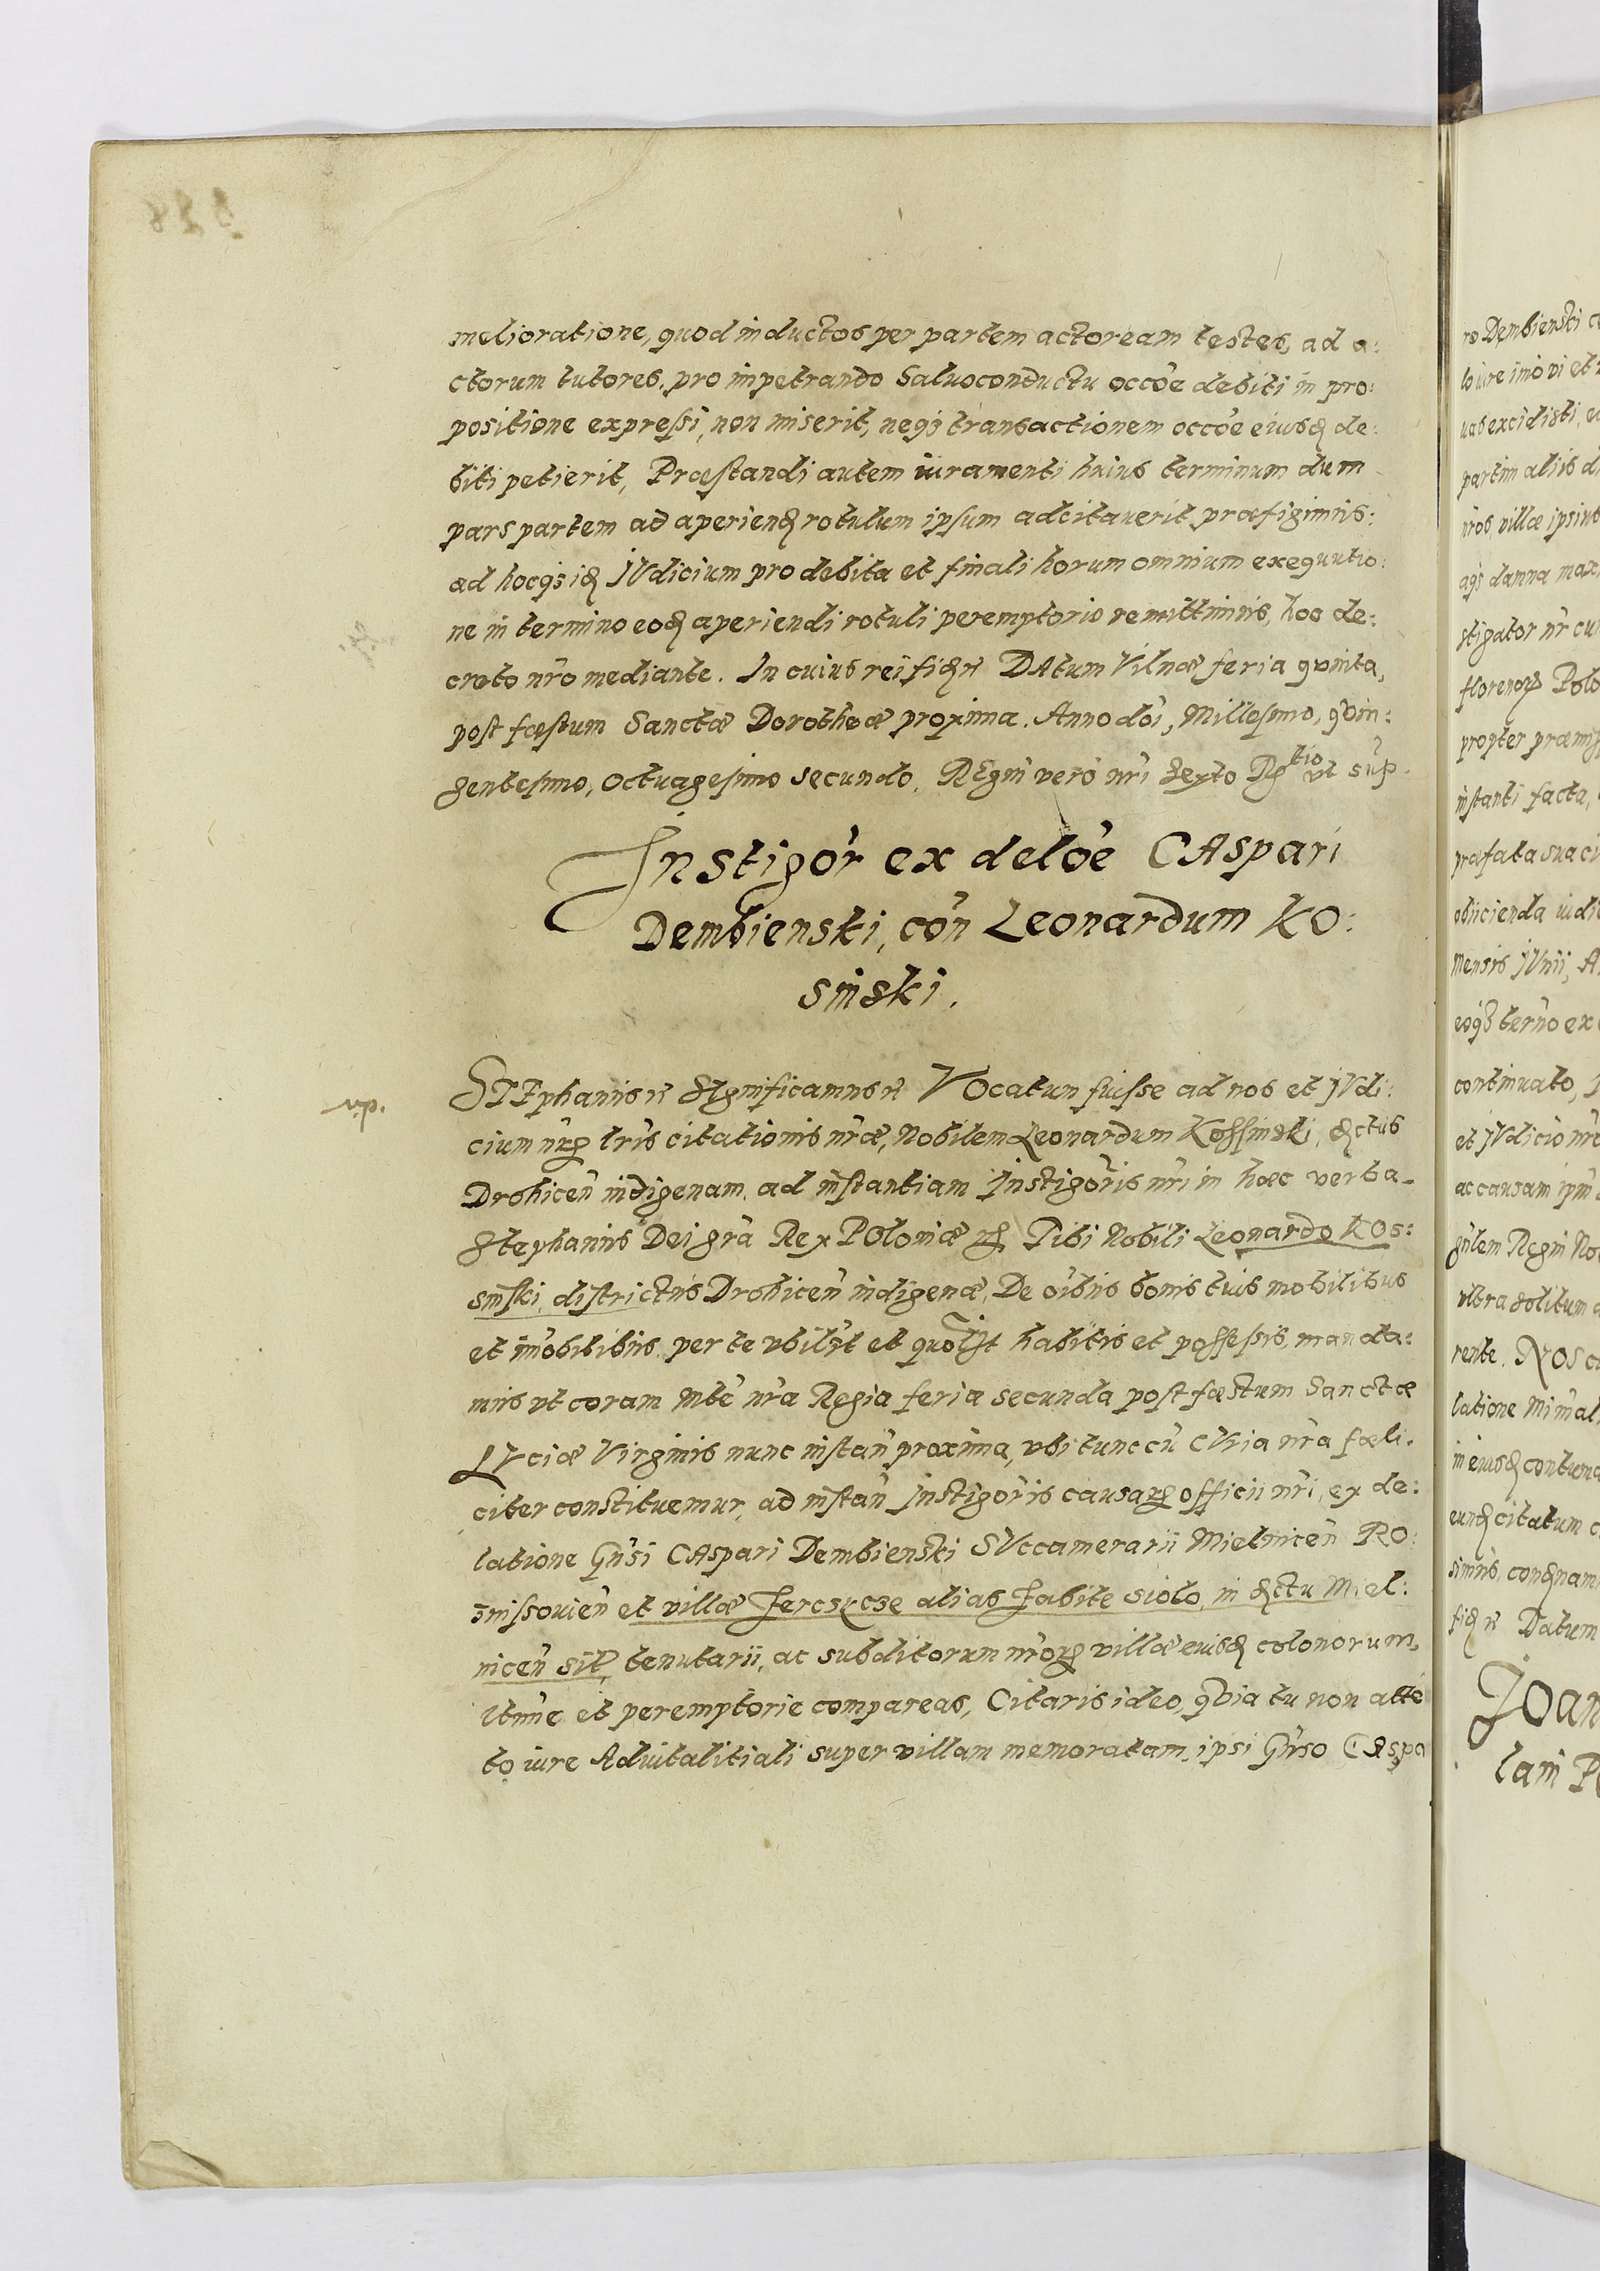 melioratione, quod inductos per partem actoream testes, ad a:
ctorum tutores, pro impetrando Saluoconductu occõe debiti in pro:
positione expressi, non miserit, neqʒ transactionem occõe eiusdẽ de:
biti petierit, Præstandi autem iuramenti huius terminum dum
pars partem ad aperiendũ rotulum ipsum adcitauerit præfigimus:
ad hocqʒ idẽ JVdicium pro debita et finali horum omnium exequutio:
ne in termino eodẽ aperiendi rotuli peremptorio remittimus, hoc de:
creto nr̃o mediante. In cuius rei fidẽ rc̃ DAtum Vilnæ feria quinta,
post fæstum Sanctæ Dorotheæ proxima. Anno doĩ, Millesimo, quin:
gentesimo, Octuagesimo secundo, REgni vero nr̃i sexto Rg̃tio vt sup̃
Instigõr ex delõe CAspari
Dembienski, cõn Leonardum KO:
sinski.
STEphanus rc̃ SIgnificamus rc̃ VOcatun fuisse ad nos et JVdi:
vip.
cium nr̃ꝝ lrĩs citationis nr̃æ, Nobilem Leonardum Kossinski, dĩctus
Drohicen̄ indigenam, ad instantiam Instigõris nr̃i in hæc verba
Stephanus Dei gr̃a Rex POloniæ rc̃ Tibi Nobili Leonardo KOs:
sinski, districtus Drohicen̄ indigenæ, De oĩbus bonis tuis mobilibus
et imõbilibus per te vbilĩt et quolĩt habitis et possessis, manda:
mus vt coram Mte nr̃a Regia feria secunda post fæstum Sanctæ
LVciæ Virginis nunc instan̄ proxima, vbi tunc cũ CVria nr̃a fæli:
citer constituemur, ad instan̄ Instigõris causaꝝ officii nr̃i, ex de:
latione Gñsi CAspari Dembienski SVccamerarii Mielnicen̄ RO:
smissouien̄ et villæ Jerczycze alias Jabite siolo, in dĩctu Miel:
nicen̄ sit, tenutarii, ac subditorum nr̃oꝝ villæ eiusdẽ colonorum,
ltimẽ et peremptorie compareas, Citaris ideo, quia tu non attẽ
to iure Aduitalitiali super villam memoratam, ipsi Gñso CAspa